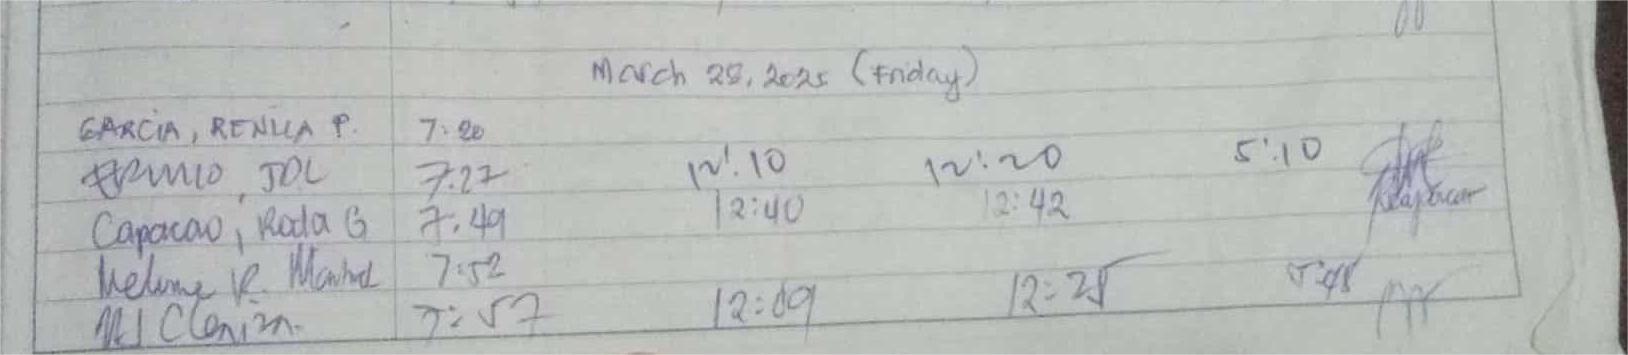 March 28, 2025 (Friday)
GARCIA, RENILA P. 7:20
JDL 7:27 12:10 12:20 5:10
Capacao, Roda G 7:49 12:40 12:42
R. 7:52
MJ Cleniza. 7:57 12:09 12:25 5:48